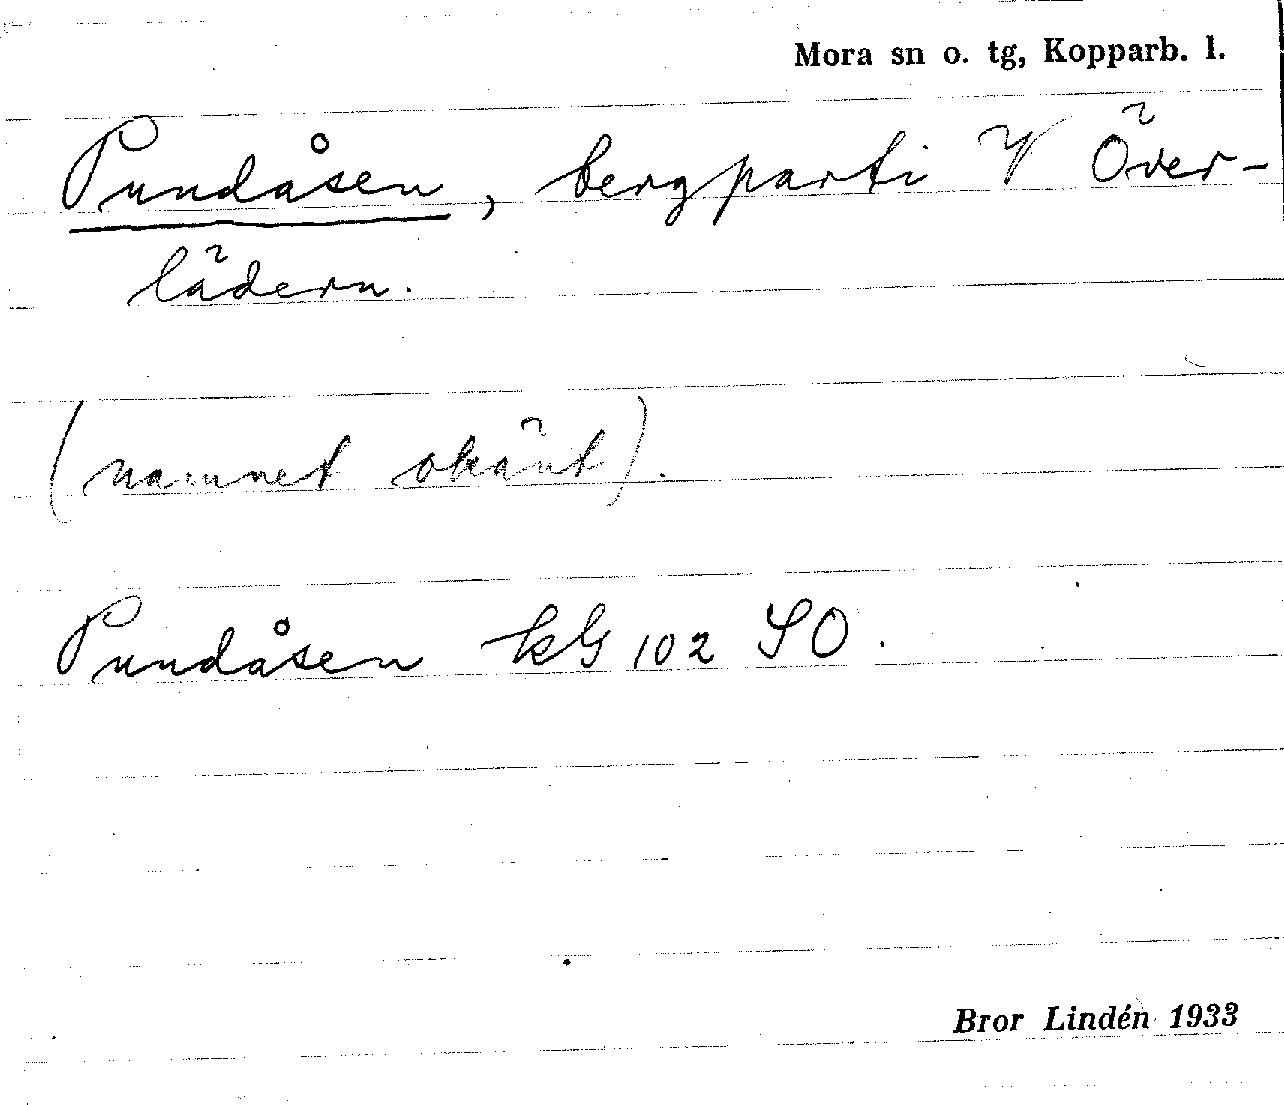 Mora sn o. tg, Kopparb. l.
Pundåsen, bergparti V Över-
lädern.
(namnet okänt).
Pundåsen kbl 102 SO.
Bror Lindén 1933